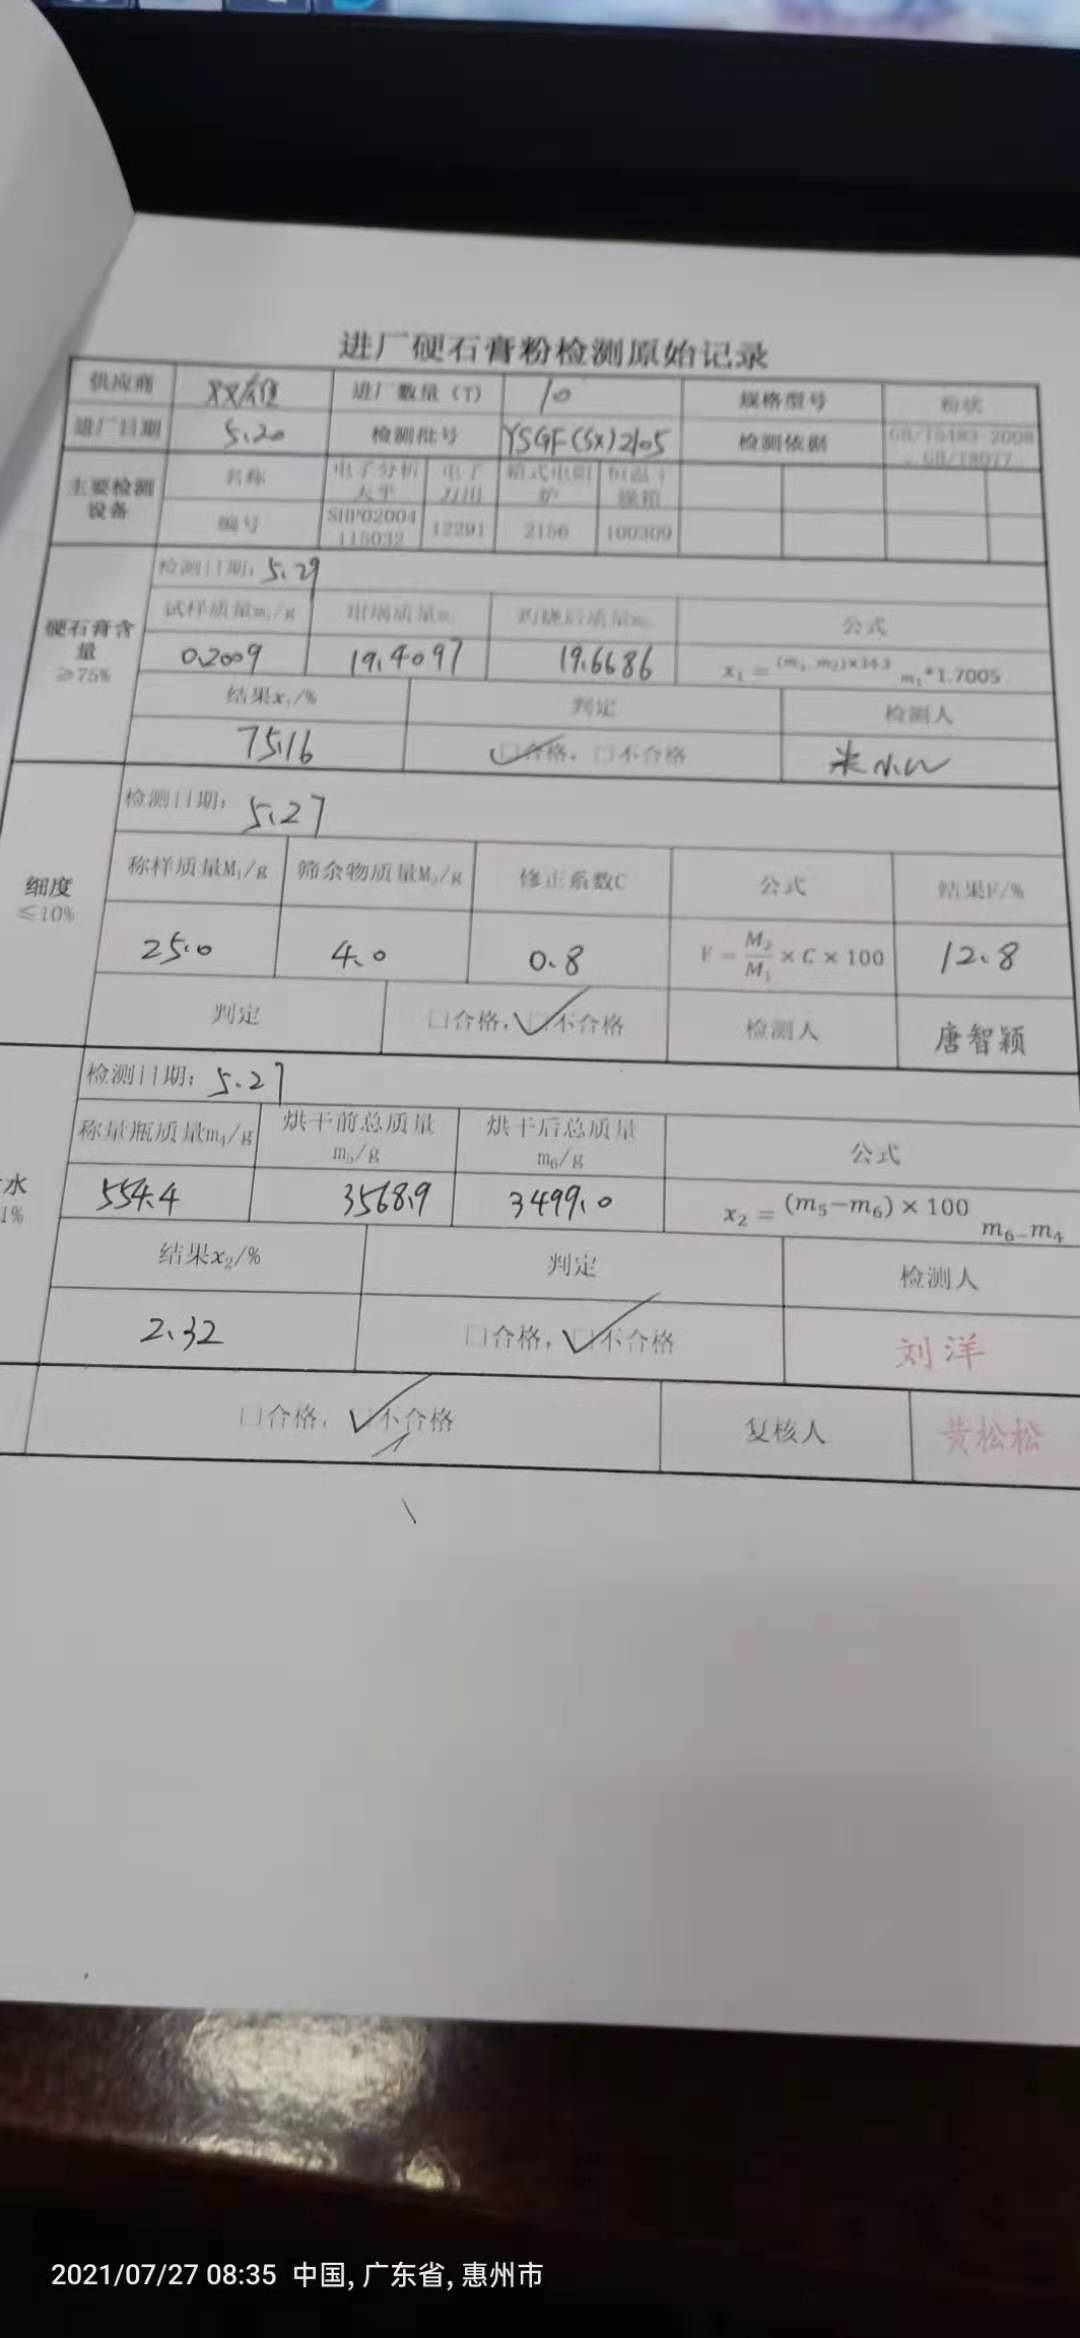 进厂硬石膏粉检测原始记录
供应商 双雄 进厂数量（T） 10 规格型号 粉状
进厂日期 5.20 检测批号 YSGF(SX)2105 检测依据 GB/T5483-2008、GB/T8077
主要检测设备 名称 电子分析天平 电子 箱式电阻炉 恒温干燥箱
编号 SHP02004115032 12291 2156 100309
硬石膏含量 ≥75%
检测日期: 5.29
试样质量m₁/g 坩埚质量m 灼烧后质量m 公式
0.2009 19.4097 19.6686 m₁*1.7005
结果x₁/% 判定 检测人
75.16 □合格，□不合格
细度 ≤10%
检测日期: 5.27
称样质量M₁/g 筛余物质量M₂/g 修正系数C 公式 结果F/%
25.0 4.0 0.8 F=M₂/M₁×C×100 12.8
判定 □合格，□不合格 检测人 唐智颖
检测日期: 5.27
称量瓶质量m₄/g 烘干前总质量m₅/g 烘干后总质量m₆/g 公式
水 1%
554.4 3568.9 3499.0 x₂=(m₅−m₆)×100 m₆−m₄
结果x₂/% 判定 检测人
2.32 □合格，□不合格 刘洋
□合格，□不合格 复核人 黄松松
2021/07/27 08:35 中国, 广东省, 惠州市